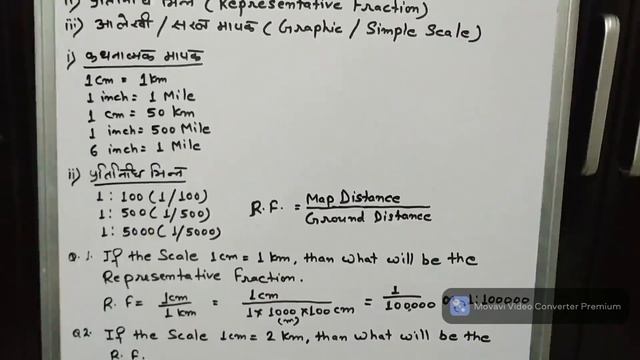 ii) प्रतिनिधि भिन्न (Representative Fraction)
iii) आलेखी / सरल मापक (Graphic / Simple Scale)
i) कथनात्मक मापक
1 cm = 1 km
1 inch = 1 Mile
1 cm = 50 km
1 inch = 500 Mile
6 inch = 1 Mile
ii) प्रतिनिधि भिन्न
1 : 100 (1/100)
1 : 500 (1/500)
1 : 5000 (1/5000)
R.F. = Map Distance / Ground Distance
Q.1. If the Scale 1cm = 1 km, than what will be the
Representative Fraction.
R.F = 1cm / 1 km = 1cm / 1 × 1000 (m) × 100 cm = 1 / 100,000 or 1:100000
Movavi Video Converter Premium
Q.2. If the Scale 1cm = 2 km, than what will be the
R.F.